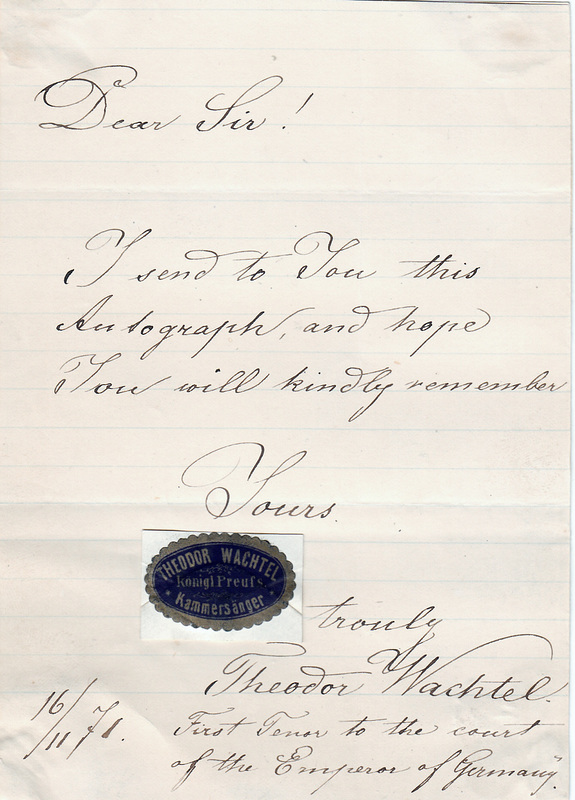 Dear Sir!
I send to You this
Autograph, and hope
You will kindly remember
Yours.
THEODOR WACHTEL
Königl Preuß.
Kammersänger
trouly
Theodor Wachtel.
16/11 71.
First Tenor to the court
of the Emperor of Germany.